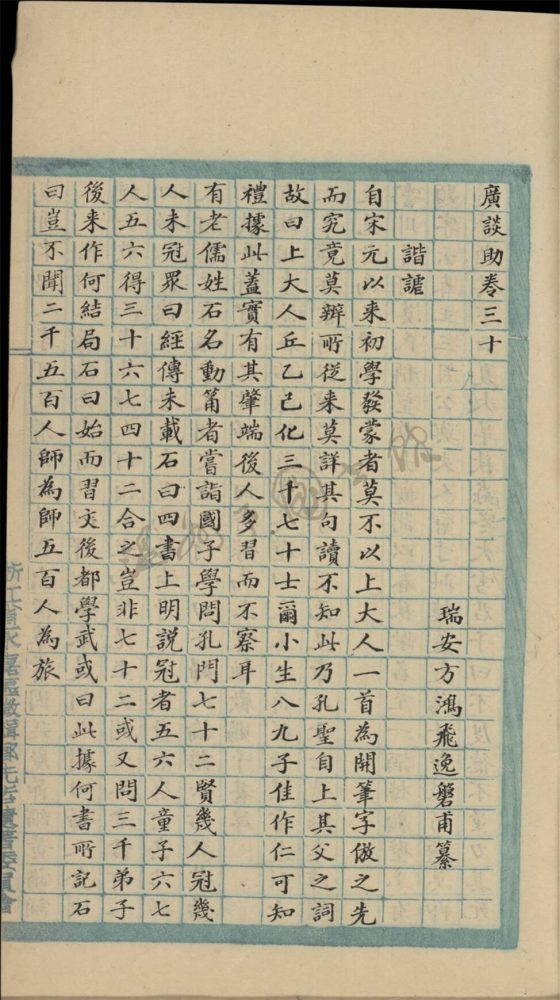 廣談助卷三十
瑞安方鴻飛逸磐甫纂
諧謔
自宋元以来初學發蒙者莫不以上大人一首為開筆字倣之先
而究竟莫辨所從来莫詳其句讀不知此乃孔聖自上其父之詞
故曰上大人丘乙己化三千七十士爾小生八九子佳作仁可知
禮據此蓋實有其肇端後人多習而不察耳
有老儒姓石名動筩者嘗詣國子學問孔門七十二賢幾人冠幾
人未冠眾曰經傳未載石曰四書上明説冠者五六人童子六七
人五六得三十六七四十二合之豈非七十二或又問三千弟子
後来作何結局石曰始而習文後都學武或曰此據何書所記石
曰豈不聞二千五百人師為師五百人為旅